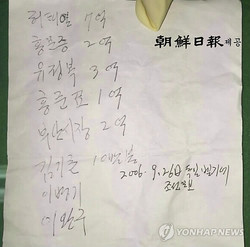 허태열 7억
홍문종 2억
유정복 3억
홍준표 1억
부산시장 2억
김기춘 10만불
2006. 9. 26日 독일 벨기에
조선일보
이병기
이완구
朝鮮日報 제공
YONHAPNEWS